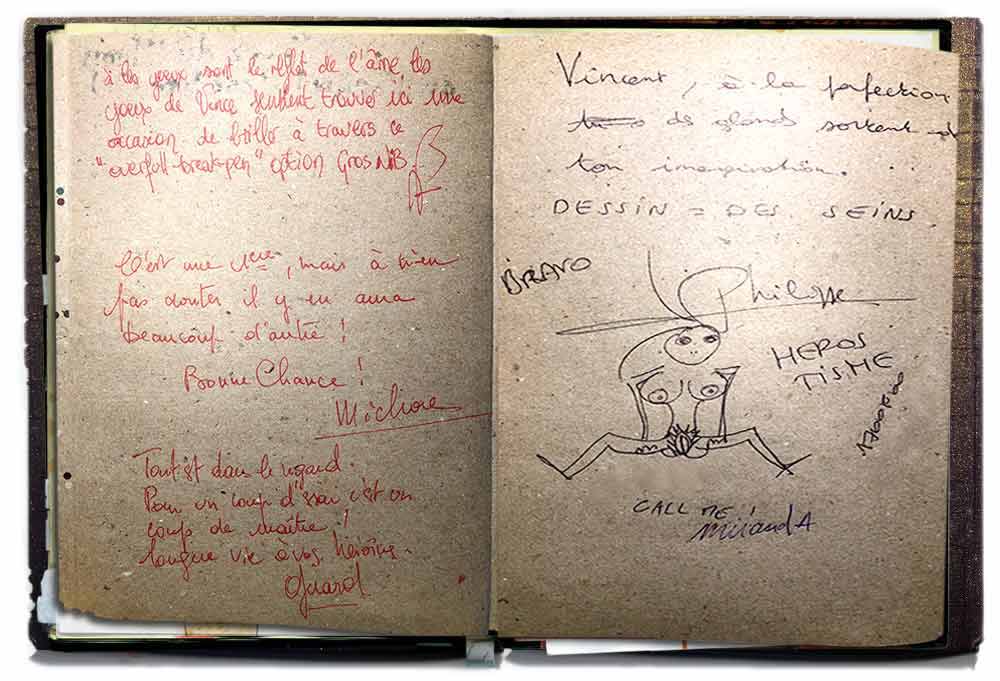 si les yeux sont le reflet de l'âme, les
yeux de Vince semblent trouver ici une
occasion de briller à travers ce
"overfull-break-pen" option Gros NIB
C'est une 1ère, mais à n'en
pas douter il y en aura
beaucoup d'autre !
Bonne Chance !
Tout est dans le regard.
Pour un coup d'essai c'est un
coup de maître !
longue vie à vos héroïnes.
Gérard
Vincent, à la perfection
de glands sortent de
ton imagination.
DESSIN = DES SEINS
BRAVO
Philippe
HEROS
TISME
CALL ME !
MirandA